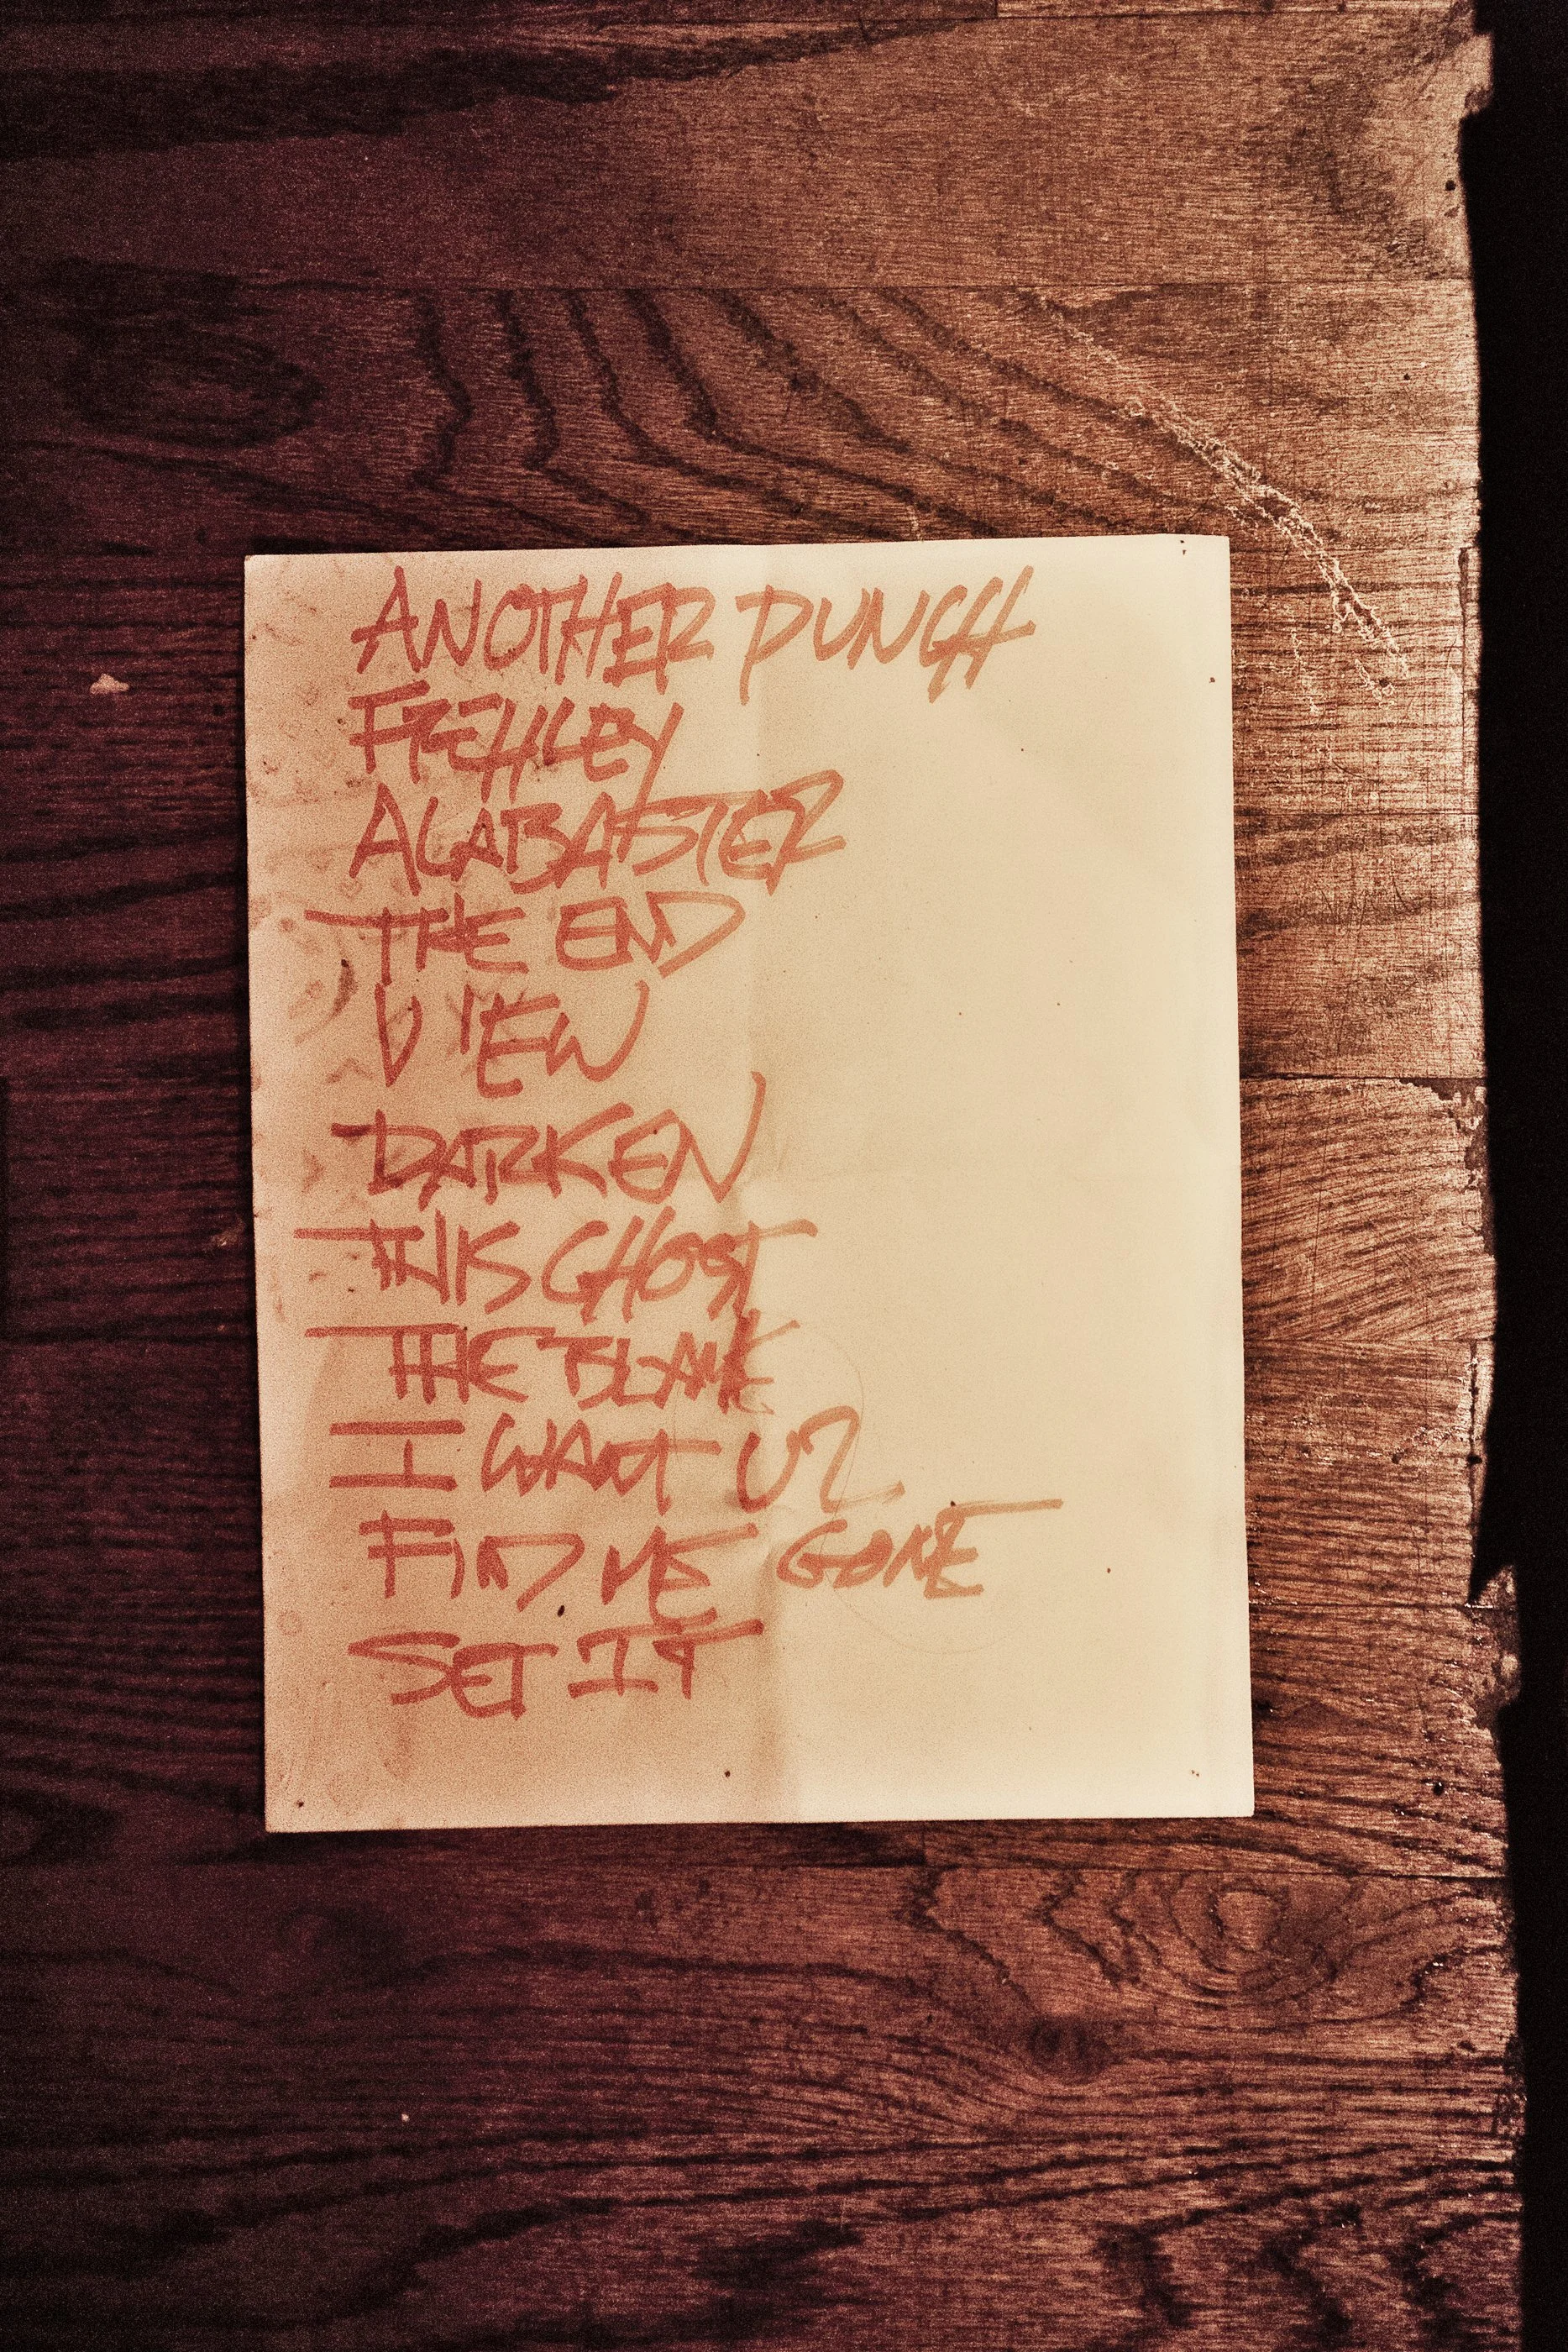 ANOTHER PUNCH
FREHLEY
ALABASTER
THE END
VIEW
DARKEN
THIS GHOST
THE BLANK
I WANT U2
FIND ME GONE
SET IT